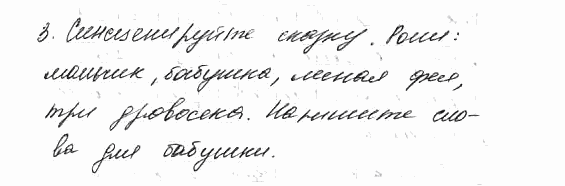 3. Инсценируйте сказку. Роли:
мальчик, бабушка, лесная фея,
три дровосека. Напишите сло-
ва для бабушки.